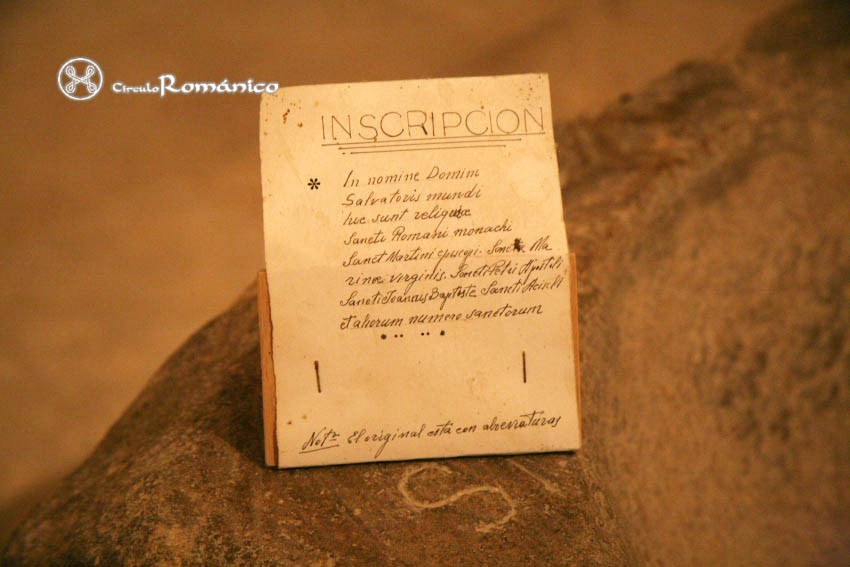 CirculoRománico
INSCRIPCION
* In nomine Domini
Salvatoris mundi
huc sunt reliquiæ
Sancti Romani monachi
Sanct Martini episcopi. Sancte Ma
rinæ virginis. Sancti Petri Apostoli
Sancti Joannus Baptiste Sancti Aciscli
et aliorum numero sanctorum
Nota El original está con abreviaturas
S